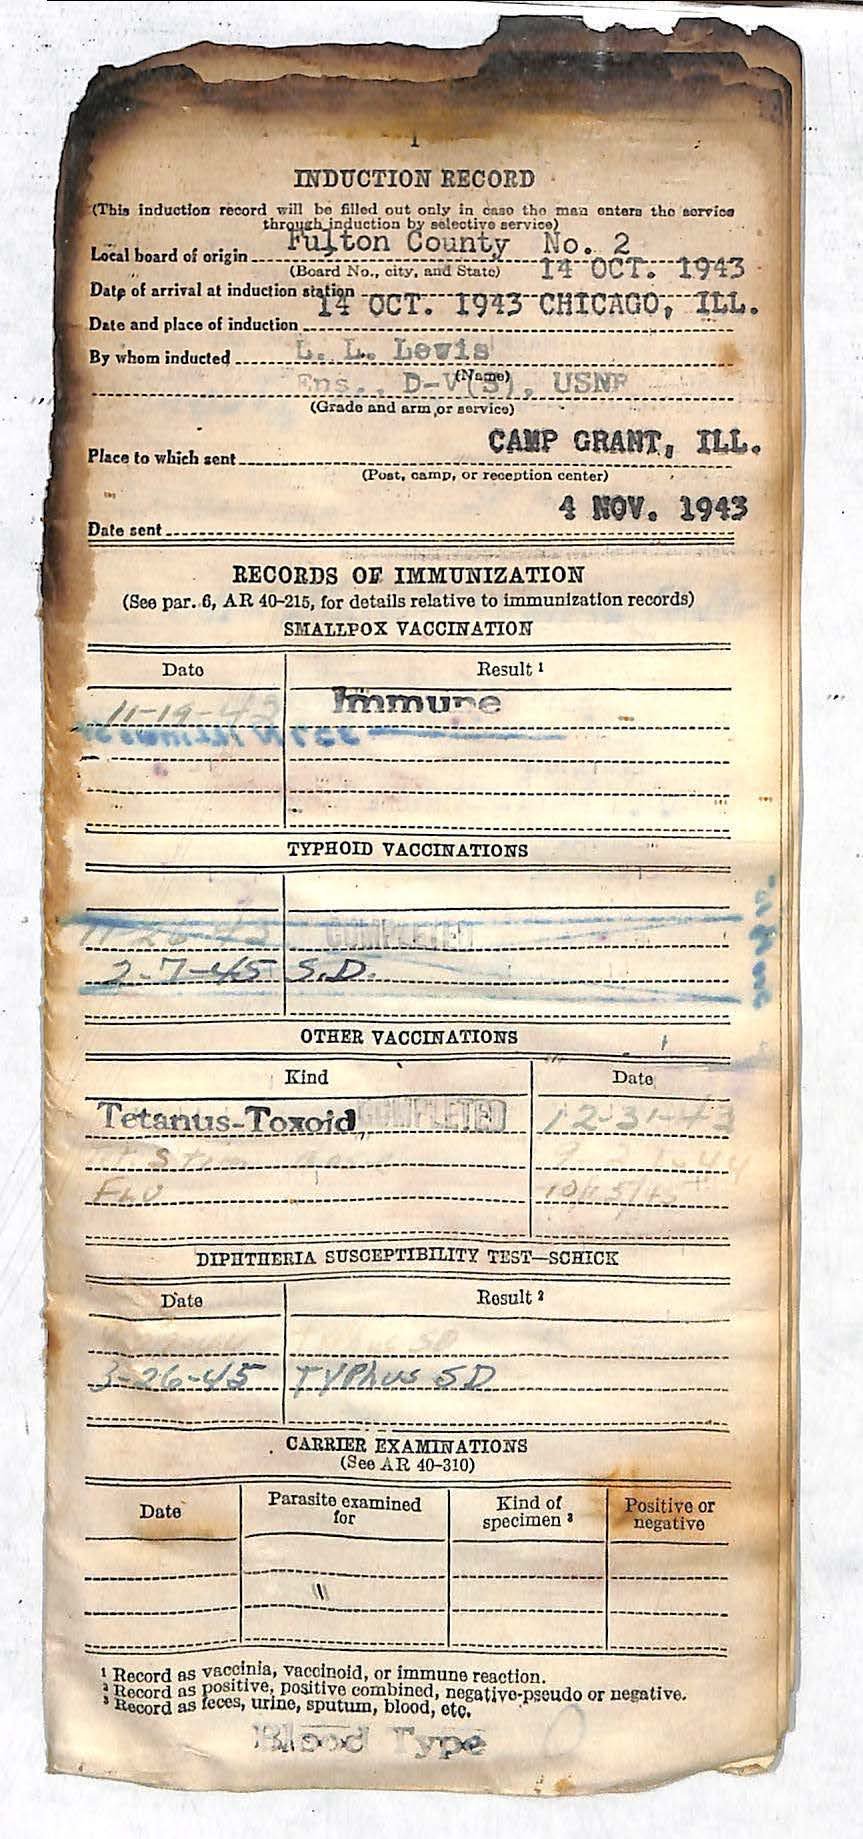 1
INDUCTION RECORD
(This induction record will be filled out only in case the man enters the service
through induction by selective service)
Local board of origin Fulton County No. 2
(Board No., city, and State)
Date of arrival at induction station 14 OCT. 1943
Date and place of induction 14 OCT. 1943 CHICAGO, ILL.
By whom inducted L. L. Lewis
(Name)
Ens., D-V(S), USNR
(Grade and arm or service)
Place to which sent CAMP GRANT, ILL.
(Post, camp, or reception center)
Date sent 4 NOV. 1943
RECORDS OF IMMUNIZATION
(See par. 6, AR 40-215, for details relative to immunization records)
SMALLPOX VACCINATION
Date Result 1
11-19-43 Immune
TYPHOID VACCINATIONS
COMPLETED
2-7-45 S.D.
OTHER VACCINATIONS
Kind Date
Tetanus-Toxoid COMPLETED 12-31-43
FLU
DIPHTHERIA SUSCEPTIBILITY TEST—SCHICK
Date Result 2
Typhus SD
3-26-45 TYPhus SD
CARRIER EXAMINATIONS
(See AR 40-310)
Date Parasite examined for Kind of specimen 3 Positive or negative
1 Record as vaccinia, vaccinoid, or immune reaction.
2 Record as positive, positive combined, negative-pseudo or negative.
3 Record as feces, urine, sputum, blood, etc.
Blood Type O